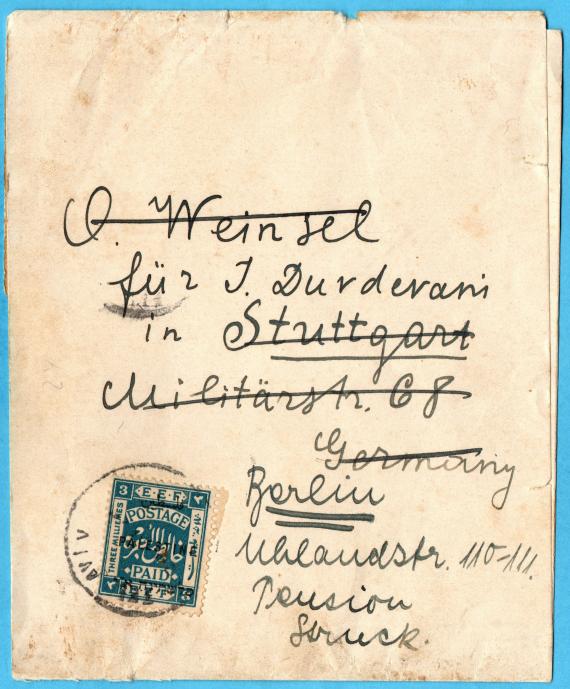 O. Weinsel
für J. Durdevani
in Stuttgart
Militärstr. 68
Germany
Berlin
Uhlandstr. 110-111.
Pension
Struck.
3 E.E.F. ٣
POSTAGE
THREE MILLIEMES
PALESTINE
PAID
AVIV